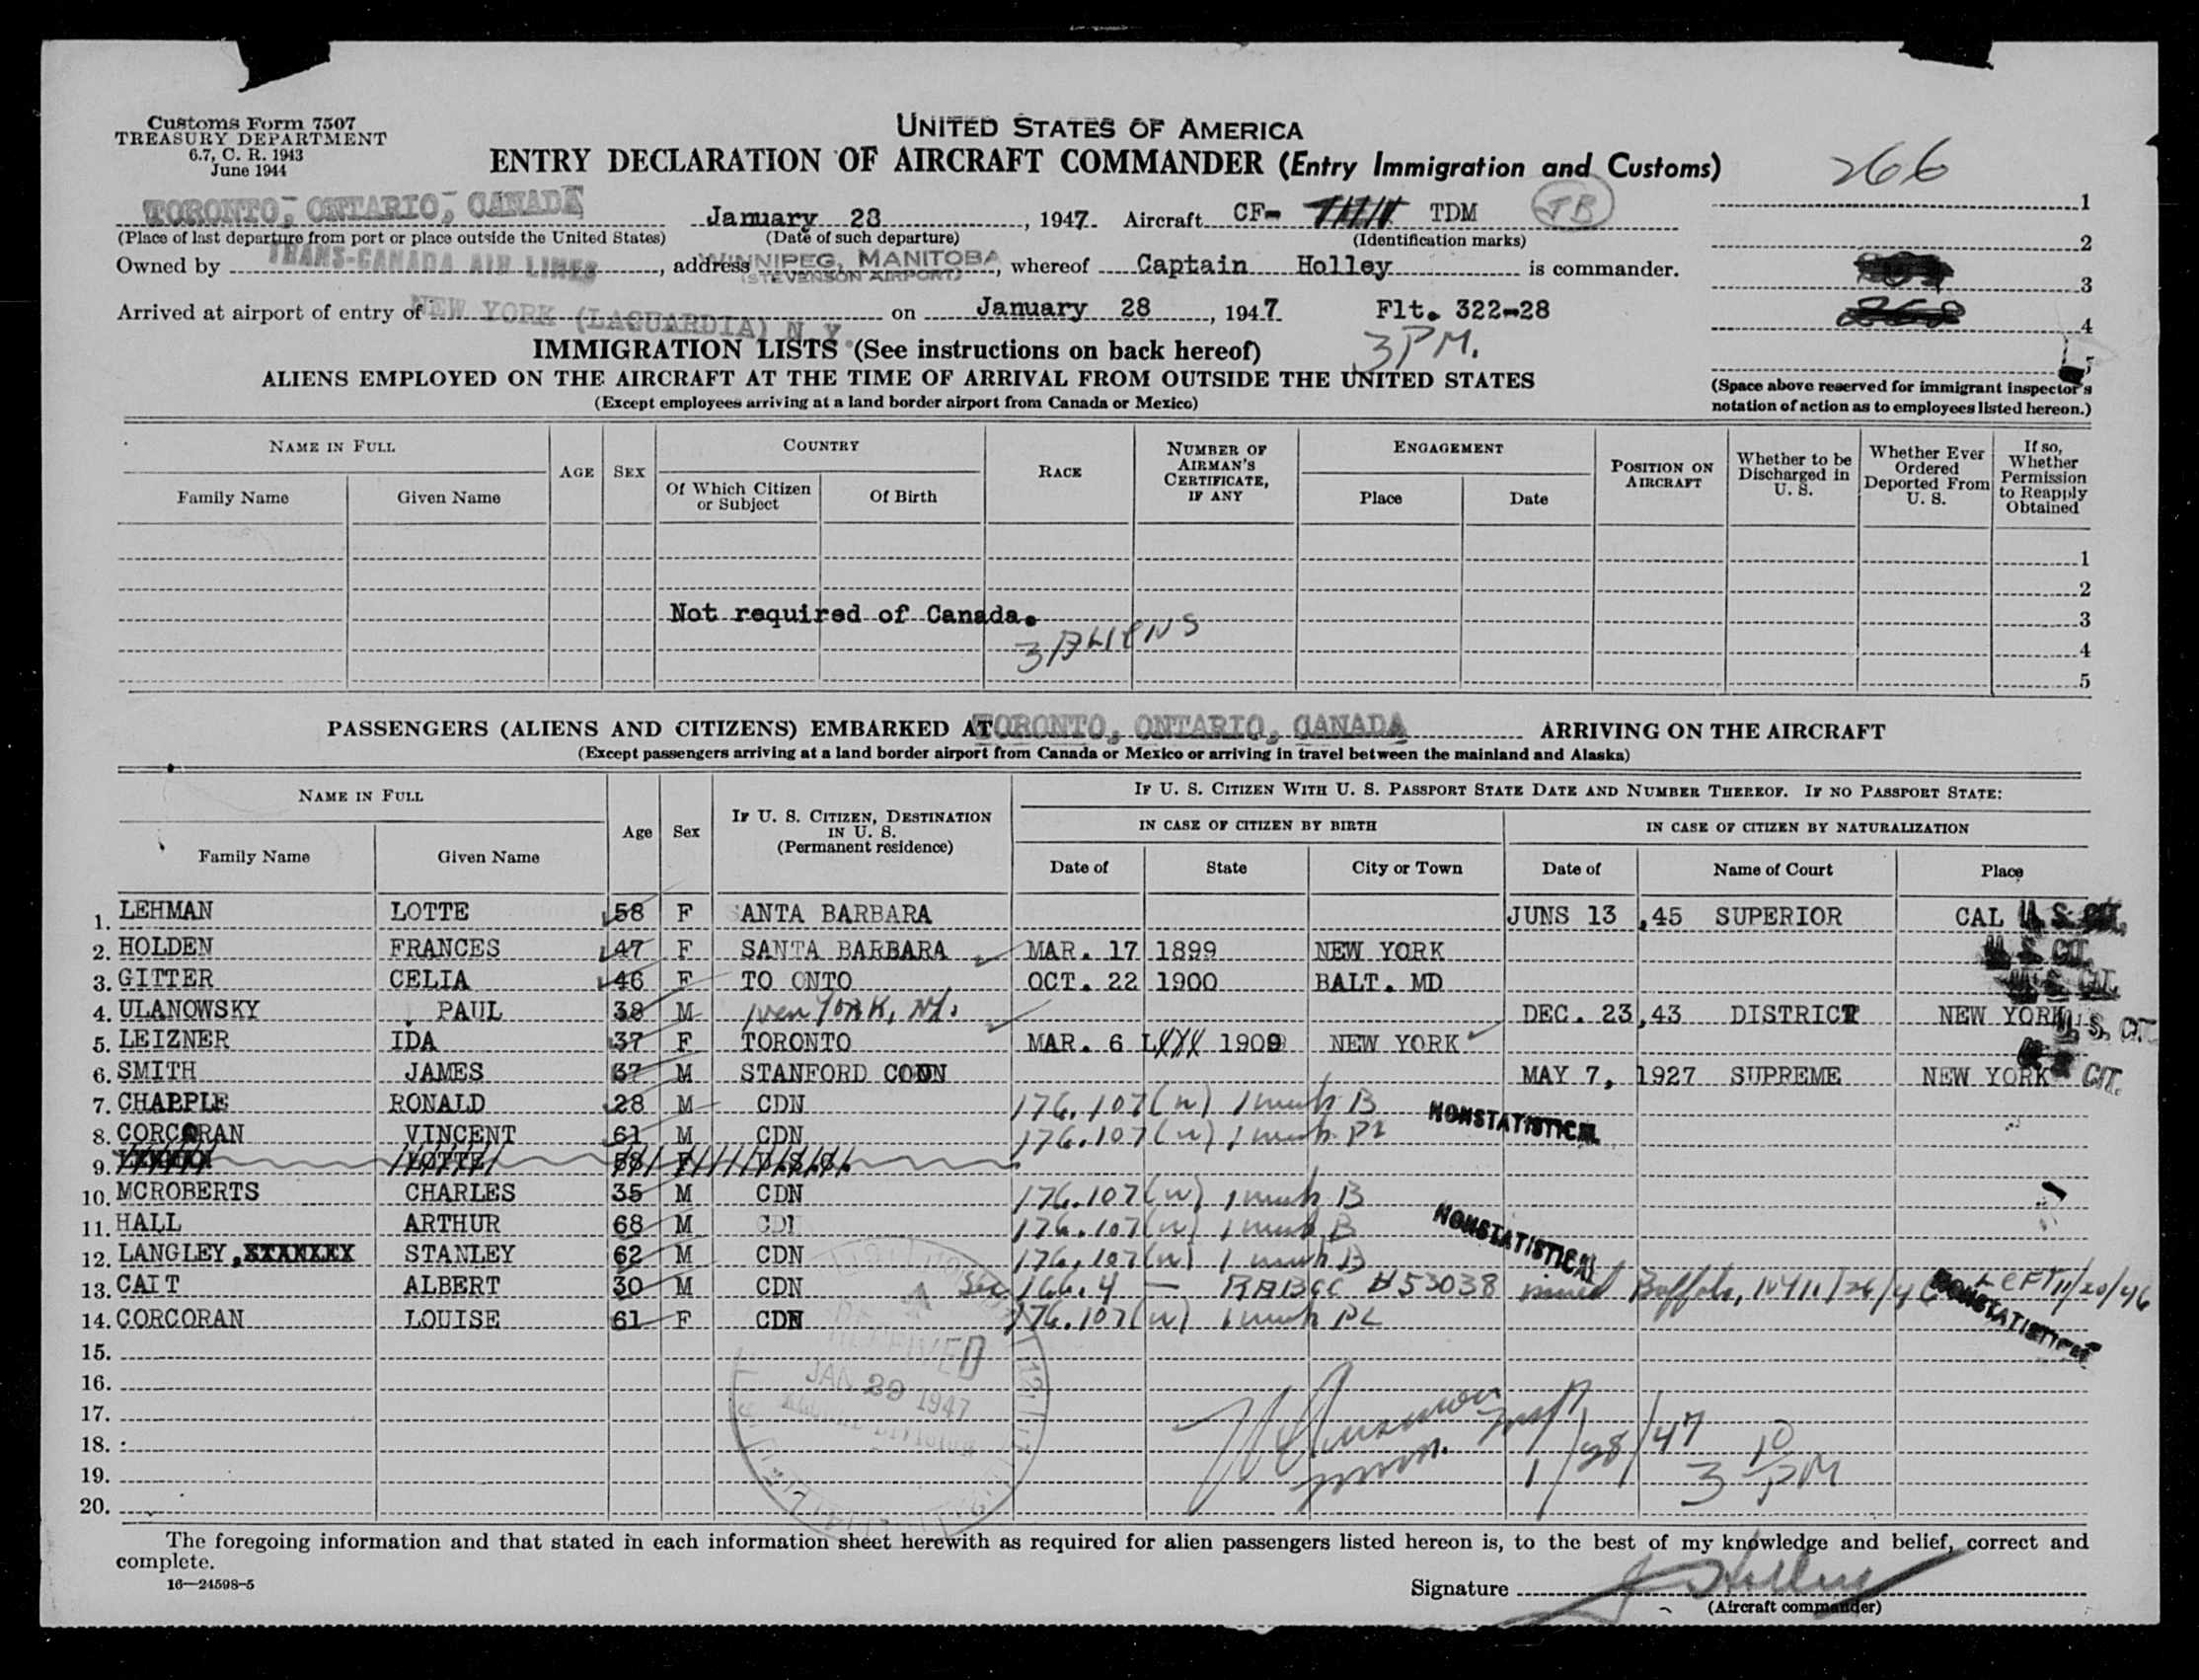 Customs Form 7507
TREASURY DEPARTMENT
6.7, C. R. 1943
June 1944
UNITED STATES OF AMERICA
ENTRY DECLARATION OF AIRCRAFT COMMANDER (Entry Immigration and Customs)
266
TORONTO, ONTARIO, CANADA January 28, 1947. Aircraft CF- TDM JB 1
(Place of last departure from port or place outside the United States) (Date of such departure) (Identification marks) 2
Owned by TRANS-CANADA AIR LINES, address WINNIPEG, MANITOBA (STEVENSON AIRPORT), whereof Captain Holley is commander. 3
Arrived at airport of entry of NEW YORK (LAGUARDIA) N.Y. on January 28, 1947. Flt. 322-28 268 4
IMMIGRATION LISTS (See instructions on back hereof) 3PM. 5
ALIENS EMPLOYED ON THE AIRCRAFT AT THE TIME OF ARRIVAL FROM OUTSIDE THE UNITED STATES
(Except employees arriving at a land border airport from Canada or Mexico)
(Space above reserved for immigrant inspector's notation of action as to employees listed hereon.)
NAME IN FULL AGE SEX COUNTRY RACE NUMBER OF AIRMAN'S CERTIFICATE, IF ANY ENGAGEMENT POSITION ON AIRCRAFT Whether to be Discharged in U. S. Whether Ever Ordered Deported From U. S. If so, Whether Permission to Reapply Obtained
Family Name Given Name Of Which Citizen or Subject Of Birth Place Date
1
2
Not required of Canada. 3
3 ALIENS 4
5
PASSENGERS (ALIENS AND CITIZENS) EMBARKED AT TORONTO, ONTARIO, CANADA ARRIVING ON THE AIRCRAFT
(Except passengers arriving at a land border airport from Canada or Mexico or arriving in travel between the mainland and Alaska)
NAME IN FULL Age Sex IF U. S. CITIZEN, DESTINATION IN U. S. (Permanent residence) IF U. S. CITIZEN WITH U. S. PASSPORT STATE DATE AND NUMBER THEREOF. IF NO PASSPORT STATE:
IN CASE OF CITIZEN BY BIRTH IN CASE OF CITIZEN BY NATURALIZATION
Family Name Given Name Date of State City or Town Date of Name of Court Place
1. LEHMAN LOTTE 58 F SANTA BARBARA JUNS 13 ,45 SUPERIOR CAL U.S. CIT.
2. HOLDEN FRANCES 47 F SANTA BARBARA MAR. 17 1899 NEW YORK U.S. CIT.
3. GITTER CELIA 46 F TO ONTO OCT. 22 1900 BALT. MD U.S. CIT.
4. ULANOWSKY PAUL 38 M New York, NY. DEC. 23,43 DISTRICT NEW YORK U.S. CIT
5. LEIZNER IDA 37 F TORONTO MAR. 6 1909 NEW YORK
6. SMITH JAMES 37 M STANFORD CONN MAY 7, 1927 SUPREME NEW YORK CIT.
7. CHAPPLE RONALD 28 M CDN 176.107(w) 1 month B NONSTATISTICAL
8. CORCORAN VINCENT 61 M CDN 176.107(w) 1 month PL
9. LOTTE 58 F U.S.
10. MCROBERTS CHARLES 35 M CDN 176.107(w) 1 month B
11. HALL ARTHUR 68 M CDN 176.107(w) 1 month B NONSTATISTICAL
12. LANGLEY, STANLEY 62 M CDN 176.107(w) 1 month B
13. CAIT ALBERT 30 M CDN Sec 166.4 — RABCC #53038 issued Buffalo, NY Left 11/20/46
14. CORCORAN LOUISE 61 F CDN 176.107(w) 1 month PL NONSTATISTICAL
15.
16. RECEIVED
17. JAN 29 1947
18. 1/28/47
19. 3 10 PM
20.
The foregoing information and that stated in each information sheet herewith as required for alien passengers listed hereon is, to the best of my knowledge and belief, correct and
complete.
16—24598-5
Signature J Holley
(Aircraft commander)